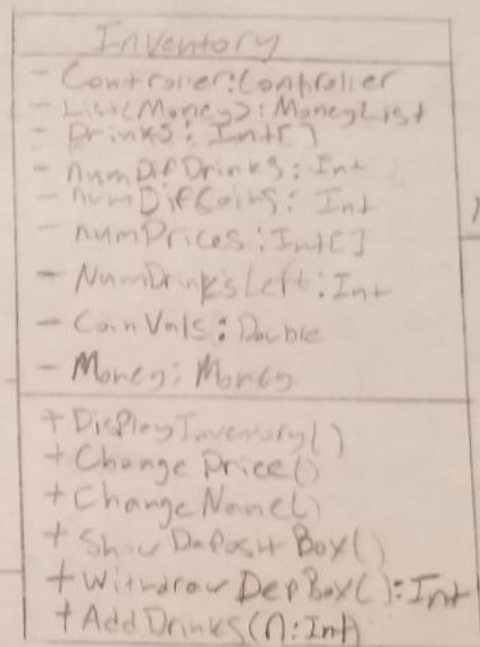 Inventory
- Controller:Controller
- List<Money>: MoneyList
- Drinks: Int[]
- numDifDrinks: Int
- numDifCoins: Int
- numPrices: Int[]
- NumDrinksLeft: Int
- CoinVals: Double
- Money: Money
+ DisplayInventory()
+ Change Price()
+ ChangeName()
+ Show Deposit Box()
+ Withdraw DepBox(): Int
+ Add Drinks(n: Int)